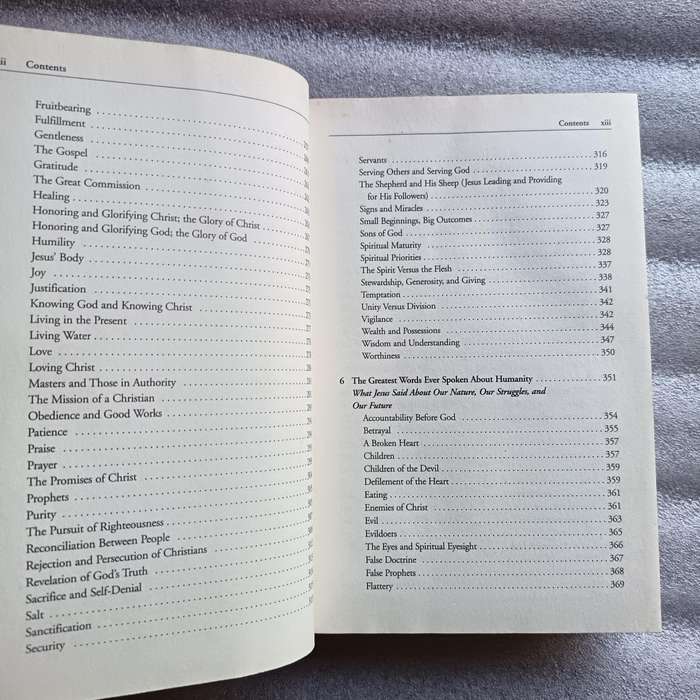 ii Contents
Fruitbearing
Fulfillment
Gentleness
The Gospel
Gratitude
The Great Commission
Healing
Honoring and Glorifying Christ; the Glory of Christ
Honoring and Glorifying God; the Glory of God
Humility
Jesus' Body
Joy
Justification
Knowing God and Knowing Christ
Living in the Present
Living Water
Love
Loving Christ
Masters and Those in Authority
The Mission of a Christian
Obedience and Good Works
Patience
Praise
Prayer
The Promises of Christ
Prophets
Purity
The Pursuit of Righteousness
Reconciliation Between People
Rejection and Persecution of Christians
Revelation of God's Truth
Sacrifice and Self-Denial
Salt
Sanctification
Security
Contents xiii
Servants 316
Serving Others and Serving God 319
The Shepherd and His Sheep (Jesus Leading and Providing
for His Followers) 320
Signs and Miracles 323
Small Beginnings, Big Outcomes 327
Sons of God 327
Spiritual Maturity 328
Spiritual Priorities 328
The Spirit Versus the Flesh 337
Stewardship, Generosity, and Giving 338
Temptation 341
Unity Versus Division 342
Vigilance 342
Wealth and Possessions 344
Wisdom and Understanding 347
Worthiness 350
6 The Greatest Words Ever Spoken About Humanity 351
What Jesus Said About Our Nature, Our Struggles, and
Our Future
Accountability Before God 354
Betrayal 355
A Broken Heart 357
Children 357
Children of the Devil 359
Defilement of the Heart 359
Eating 361
Enemies of Christ 361
Evil 363
Evildoers 365
The Eyes and Spiritual Eyesight 366
False Doctrine 367
False Prophets 368
Flattery 369